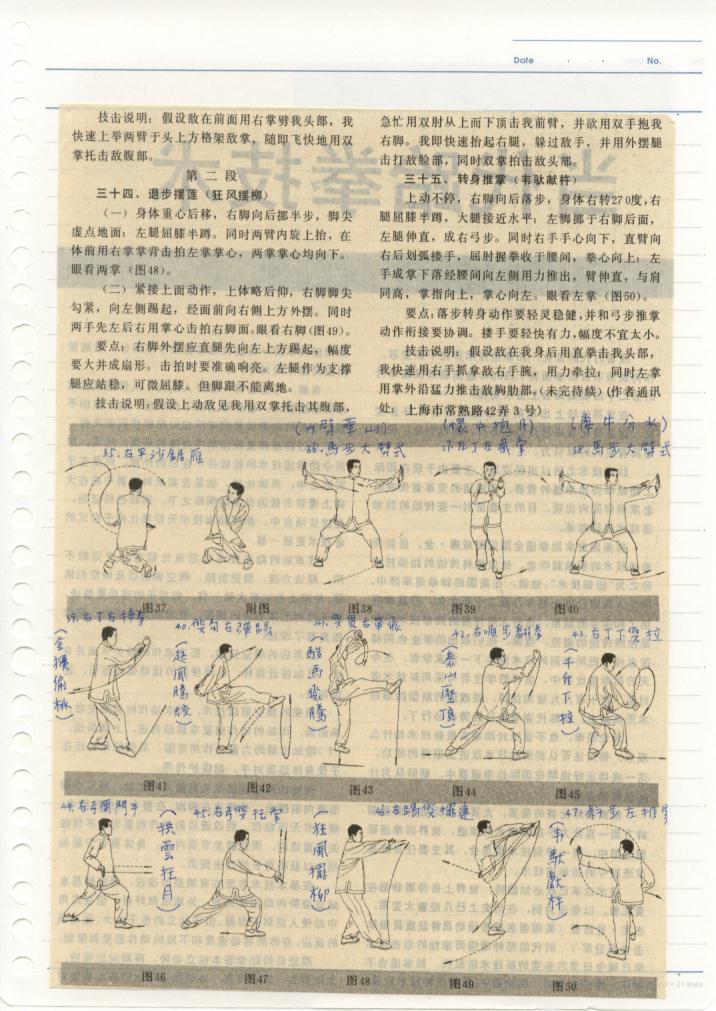 Date No.
技击说明：假设敌在前面用右掌劈我头部，我
快速上举两臂于头上方格架敌掌，随即飞快地用双
掌托击敌腹部。
第二段
三十四、退步摆莲（狂风摆柳）
（一）身体重心后移，右脚向后挪半步，脚尖
虚点地面；左腿屈膝半蹲。同时两臂内旋上抬，在
体前用右掌掌背击拍左掌掌心，两掌掌心均向下。
眼看两掌（图48）。
（二）紧接上面动作，上体略后仰，右脚脚尖
勾紧，向左侧踢起，经面前向右侧上方外摆。同时
两手先左后右用掌心击拍右脚面。眼看右脚（图49）。
要点：右脚外摆应直腿先向左上方踢起，幅度
要大并成扇形。击拍时要准确响亮。左腿作为支撑
腿应站稳，可微屈膝。但脚跟不能离地。
技击说明：假设上动敌见我用双掌托击其腹部，
急忙用双肘从上而下顶击我前臂，并欲用双手抱我
右脚。我即快速抬起右腿，躲过敌手，并用外摆腿
击打敌脸部，同时双掌拍击敌头部。
三十五、转身推掌（韦驮献杵）
上动不停，右脚向后落步，身体右转270度，右
腿屈膝半蹲，大腿接近水平；左脚挪于右脚后面，
左腿伸直，成右弓步。同时右手手心向下，直臂向
右后划弧搂手，屈肘握拳收于腰间，拳心向上；左
手成掌下落经腰间向左侧用力推出，臂伸直，与肩
同高，掌指向上，掌心向左。眼看左掌（图50）。
要点：落步转身动作要轻灵稳健，并和弓步推掌
动作衔接要协调。搂手要轻快有力，幅度不宜太小。
技击说明：假设敌在我身后用直拳击我头部，
我快速用右手抓拿敌右手腕，用力牵拉；同时左掌
用掌外沿猛力推击敌胸肋部。（未完待续）（作者通讯
处：上海市常熟路42弄3号）
（力劈華山） （懷中抱月） （犀牛分水）
35.右平沙落雁 36.馬步大劈式 37.右丁左藏掌 38.馬步大劈式
图37 附图 图38 图39 图40
39.右丁右捧拳
（金猴偷桃）
40.雙勾右彈踢
（起鳳騰蛟）
（駿馬飛騰）
42.右順步翻拳
（泰山壓頂）
43.右丁下雙拉
（千斤下拉）
图41 图42 图43 图44 图45
44.右弓開門手
45.右弓雙托掌
（拱雲托月）
46.右踢雙擺蓮
（狂風擺柳）
47.斜步左推掌
（韦馱獻杵）
图46 图47 图48 图49 图50